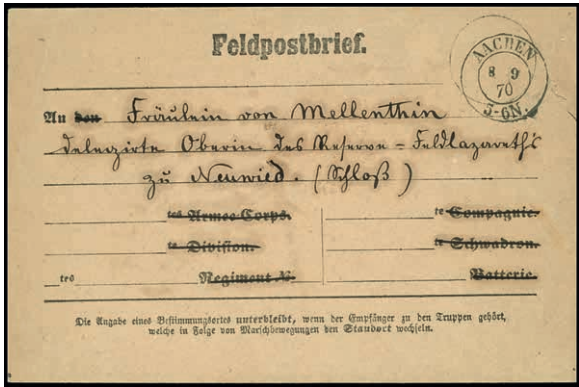 Feldpostbrief.
AACHEN
8 9
70
5-6N.
An den Fräulein von Mellenthin
delegirte Oberin des Reserve=Feldlazareths
zu Neuwied. (Schloß)
tes Armee-Corps.
te Compagnie.
te Division.
te Schwadron.
tes Regiment №
Batterie.
Die Angabe eines Bestimmungsortes unterbleibt, wenn der Empfänger zu den Truppen gehört,
welche in Folge von Marschbewegungen den Standort wechseln.